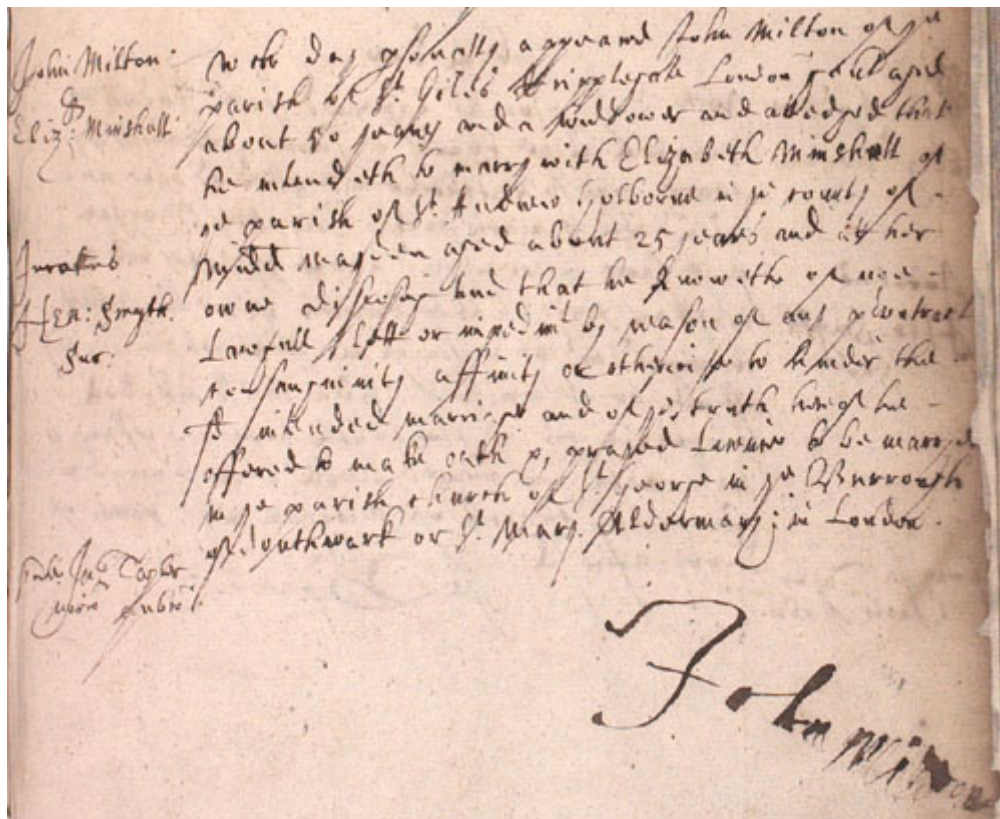 John Milton
&
Eliz: Minshull
Wch day psonally appeared John Milton of ye
parish of St. Giles Cripplegate London gent aged
about 50 yeares and a widdower and alledged that
he intendeth to marry with Elizabeth Minshull of
ye parish of St. Andrew Holborne in ye County of
Midd Mayden aged about 25 yeares and att her
owne disposeing and that he knoweth of noe
lawfull lett or impedimt by reason of any pcontract
consanguinity affinity or otherwise to hinder the
sd intended marriage and of ye truth hereof he
offered to make oath & prayed Licence to be marryed
in ye parish church of St. George in ye Burrough
of Southwark or St. Mary Aldermary in London.
Juratus
Hen: Smyth.
Sur.
Taylor
John Milton